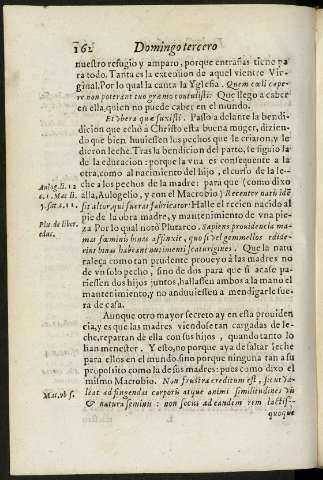 162 Domingo tercero
nuestro refugio y amparo, porque entrañas tiene pa
ra todo. Tanta es la extension de aquel vientre Vir-
ginal. Por lo qual canta la Yglesia. Quem cœli cape-
re non poterant tuo gremio contulisti. Que llego a caber
en ella, quien no puede caber en el mundo.
Et vbera quæ suxisti. Passo adelante la bendi
dicion que echò a Christo esta buena muger, dizien-
do que bien huuiessen los pechos que le criaron, y le
dieron leche. Tras la bendicion del parto, se siguio la
de la educacion: porque la vna es consequente a la
otra, como al nacimiento del hijo, el curso de la le-
che a los pechos de la madre: para que (como dixo
alla, Aulogelio, y con el Macrobio)
Aulog. li. 12
c. 1. Mac. li.
5. sat. c. 11.
sit altor, qui fuerat fabricator: Halle el recien nacido al
pie de la obra madre, y mantenimiento de vna pie-
Plu. de liber.
educ.
za Por lo qual notò Plutarco. Sapiens prouidentia ma-
mas fœminis binas affinxit, quo si vel gemellos edide-
rint binas habeant nutrimenti scaturigines. Que la natu
raleça como tan prudente proueyò a las madres no
de vn solo pecho, sino de dos para que si acase pa-
riessen dos hijos juntos, hallassen ambos a la mano el
mantenimiento, y no anduuiessen a mendigarle fue
ra de casa.
Aunque otro mayor secreto ay en esta prouiden
cia, y es que las madres viendose tan cargadas de le-
che, repartan de ella con sus hijos, quando tanto lo
han menester. Y esto, no porque aya de faltar leche
para ellos en el mundo. sino porque ninguna tan a su
proposito como la de sus madres: pues como dixo el
mismo Macrobio. Non frustra creditum est, sicut va-
Mac. vb s.
leat ad fingendas corporis atque animi similitudines vis
& natura seminis: non secus ad eandem rem lactis
quoque